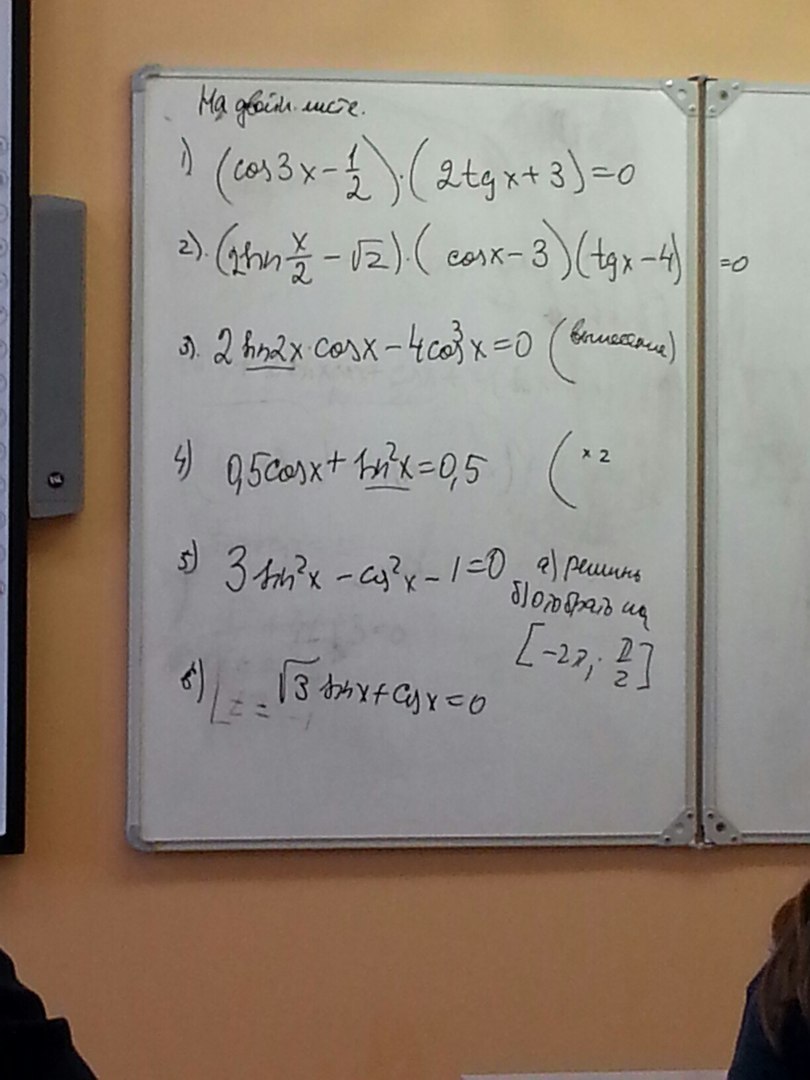 На двойн. листе.
1) (cos3x - 1/2)·(2tgx + 3) = 0
2). (2sin x/2 - √2)·(cosx - 3)(tgx - 4) = 0
3. 2sin2x·cosx - 4cos³x = 0 (вынесение)
4) 0,5cosx + sin²x = 0,5 ( x 2
5) 3sin²x - cos²x - 1 = 0 а) решить
б) отобрать на
[-2π; π/2]
6) √3 sinx + cosx = 0